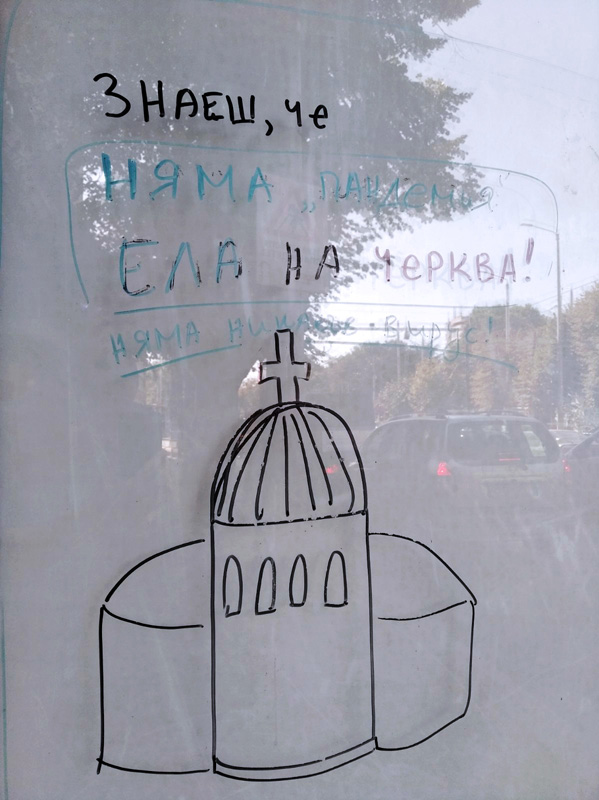 ЗНАЕШ, че
НЯМА „ПАНДЕМия"
ЕЛА НА ЧЕРКВА!
НЯМА НИКАКЪВ ВИРУС!